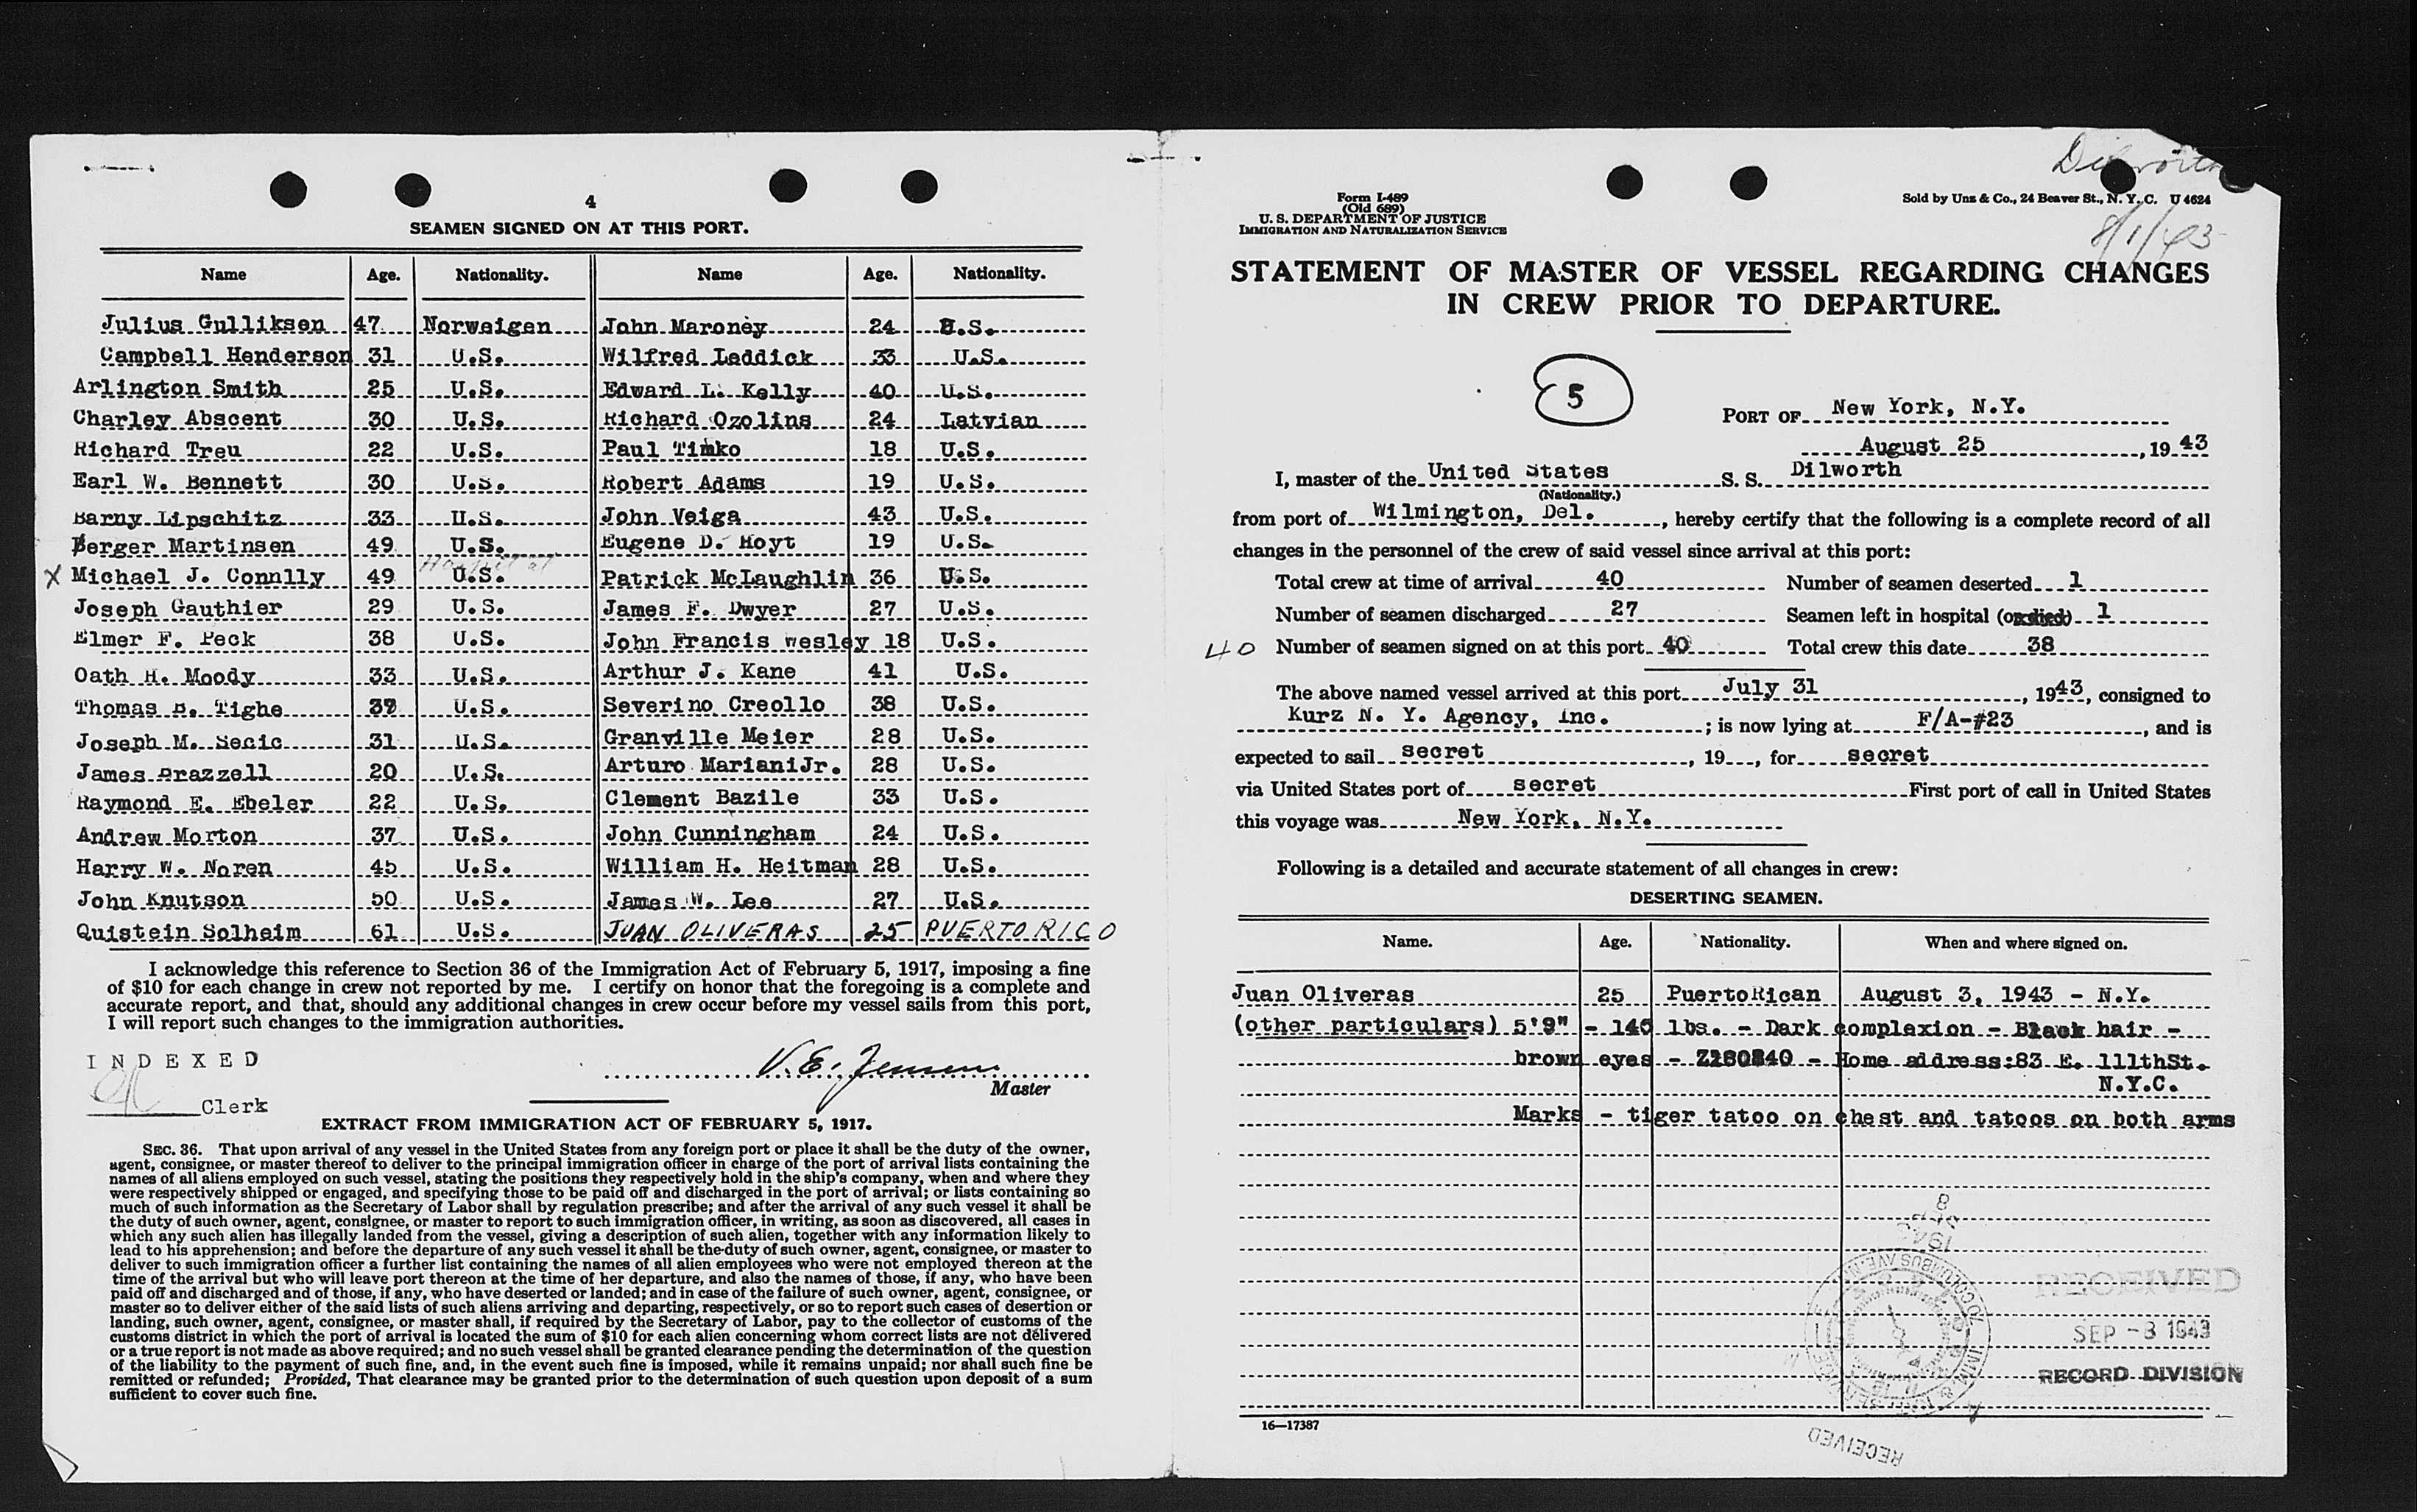 4
SEAMEN SIGNED ON AT THIS PORT.
Name Age. Nationality. Name Age. Nationality.
Julius Gulliksen 47 Norweigen John Maroney 24 U.S.
Campbell Henderson 31 U.S. Wilfred Leddick 33 U.S.
Arlington Smith 25 U.S. Edward L. Kelly 40 U.S.
Charley Abscent 30 U.S. Richard Ozolins 24 Latvian
Richard Treu 22 U.S. Paul Timko 18 U.S.
Earl W. Bennett 30 U.S. Robert Adams 19 U.S.
Barny Lipschitz 33 U.S. John Veiga 43 U.S.
Berger Martinsen 49 U.S. Eugene D. Hoyt 19 U.S.
Hospital
X Michael J. Connlly 49 U.S. Patrick McLaughlin 36 U.S.
Joseph Gauthier 29 U.S. James F. Dwyer 27 U.S.
Elmer F. Peck 38 U.S. John Francis Wesley 18 U.S.
Oath H. Moody 33 U.S. Arthur J. Kane 41 U.S.
Thomas B. Tighe U.S. Severino Creollo 38 U.S.
Joseph M. Secic 31 U.S. Granville Meier 28 U.S.
James Brazzell 20 U.S. Arturo MarianiJr. 28 U.S.
Raymond E. Ebeler 22 U.S. Clement Bazile 33 U.S.
Andrew Morton 37 U.S. John Cunningham 24 U.S.
Harry W. Noren 45 U.S. William H. Heitman 28 U.S.
John Knutson 50 U.S. James W. Lee 27 U.S.
Quistein Solheim 61 U.S. JUAN OLIVERAS 25 PUERTO RICO
I acknowledge this reference to Section 36 of the Immigration Act of February 5, 1917, imposing a fine
of $10 for each change in crew not reported by me. I certify on honor that the foregoing is a complete and
accurate report, and that, should any additional changes in crew occur before my vessel sails from this port,
I will report such changes to the immigration authorities.
INDEXED
V. E. Jensen
Master
Clerk
EXTRACT FROM IMMIGRATION ACT OF FEBRUARY 5, 1917.
SEC. 36. That upon arrival of any vessel in the United States from any foreign port or place it shall be the duty of the owner,
agent, consignee, or master thereof to deliver to the principal immigration officer in charge of the port of arrival lists containing the
names of all aliens employed on such vessel, stating the positions they respectively hold in the ship's company, when and where they
were respectively shipped or engaged, and specifying those to be paid off and discharged in the port of arrival; or lists containing so
much of such information as the Secretary of Labor shall by regulation prescribe; and after the arrival of any such vessel it shall be
the duty of such owner, agent, consignee, or master to report to such immigration officer, in writing, as soon as discovered, all cases in
which any such alien has illegally landed from the vessel, giving a description of such alien, together with any information likely to
lead to his apprehension; and before the departure of any such vessel it shall be the duty of such owner, agent, consignee, or master to
deliver to such immigration officer a further list containing the names of all alien employees who were not employed thereon at the
time of the arrival but who will leave port thereon at the time of her departure, and also the names of those, if any, who have been
paid off and discharged and of those, if any, who have deserted or landed; and in case of the failure of such owner, agent, consignee, or
master so to deliver either of the said lists of such aliens arriving and departing, respectively, or so to report such cases of desertion or
landing, such owner, agent, consignee, or master shall, if required by the Secretary of Labor, pay to the collector of customs of the
customs district in which the port of arrival is located the sum of $10 for each alien concerning whom correct lists are not delivered
or a true report is not made as above required; and no such vessel shall be granted clearance pending the determination of the question
of the liability to the payment of such fine, and, in the event such fine is imposed, while it remains unpaid; nor shall such fine be
remitted or refunded; Provided, That clearance may be granted prior to the determination of such question upon deposit of a sum
sufficient to cover such fine.
Dilworth
Form I-489
(Old 689)
U. S. DEPARTMENT OF JUSTICE
IMMIGRATION AND NATURALIZATION SERVICE
Sold by Unz & Co., 24 Beaver St., N. Y. C. U 4624
8/1/43
STATEMENT OF MASTER OF VESSEL REGARDING CHANGES
IN CREW PRIOR TO DEPARTURE.
5
PORT OF New York, N.Y.
August 25, 1943
I, master of the United States S. S. Dilworth
(Nationality.)
from port of Wilmington, Del., hereby certify that the following is a complete record of all
changes in the personnel of the crew of said vessel since arrival at this port:
Total crew at time of arrival 40 Number of seamen deserted 1
Number of seamen discharged 27 Seamen left in hospital (or died) 1
40 Number of seamen signed on at this port 40 Total crew this date 38
The above named vessel arrived at this port July 31, 1943, consigned to
Kurz N. Y. Agency, Inc.; is now lying at F/A-#23, and is
expected to sail secret, 19, for secret
via United States port of secret First port of call in United States
this voyage was New York, N.Y.
Following is a detailed and accurate statement of all changes in crew:
DESERTING SEAMEN.
Name. Age. Nationality. When and where signed on.
Juan Oliveras 25 PuertoRican August 3, 1943 - N.Y.
(other particulars) 5'9" - 145 lbs. - Dark complexion - Black hair -
brown eyes - - Home address:83 E. 111thSt.
N.Y.C.
Marks - tiger tatoo on chest and tatoos on both arms
RECEIVED
SEP -3 1943
RECORD DIVISION
16—17387
RECEIVED